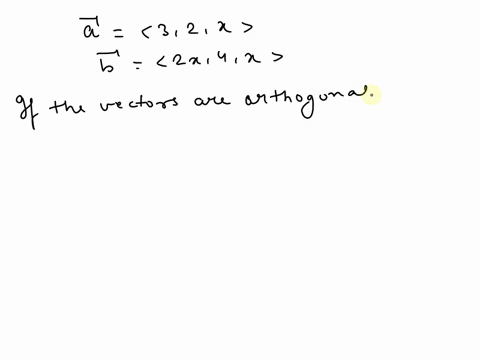 a⃗ = < 3, 2, x >
b⃗ = < 2x, 4, x >
If the vectors are orthogonal.